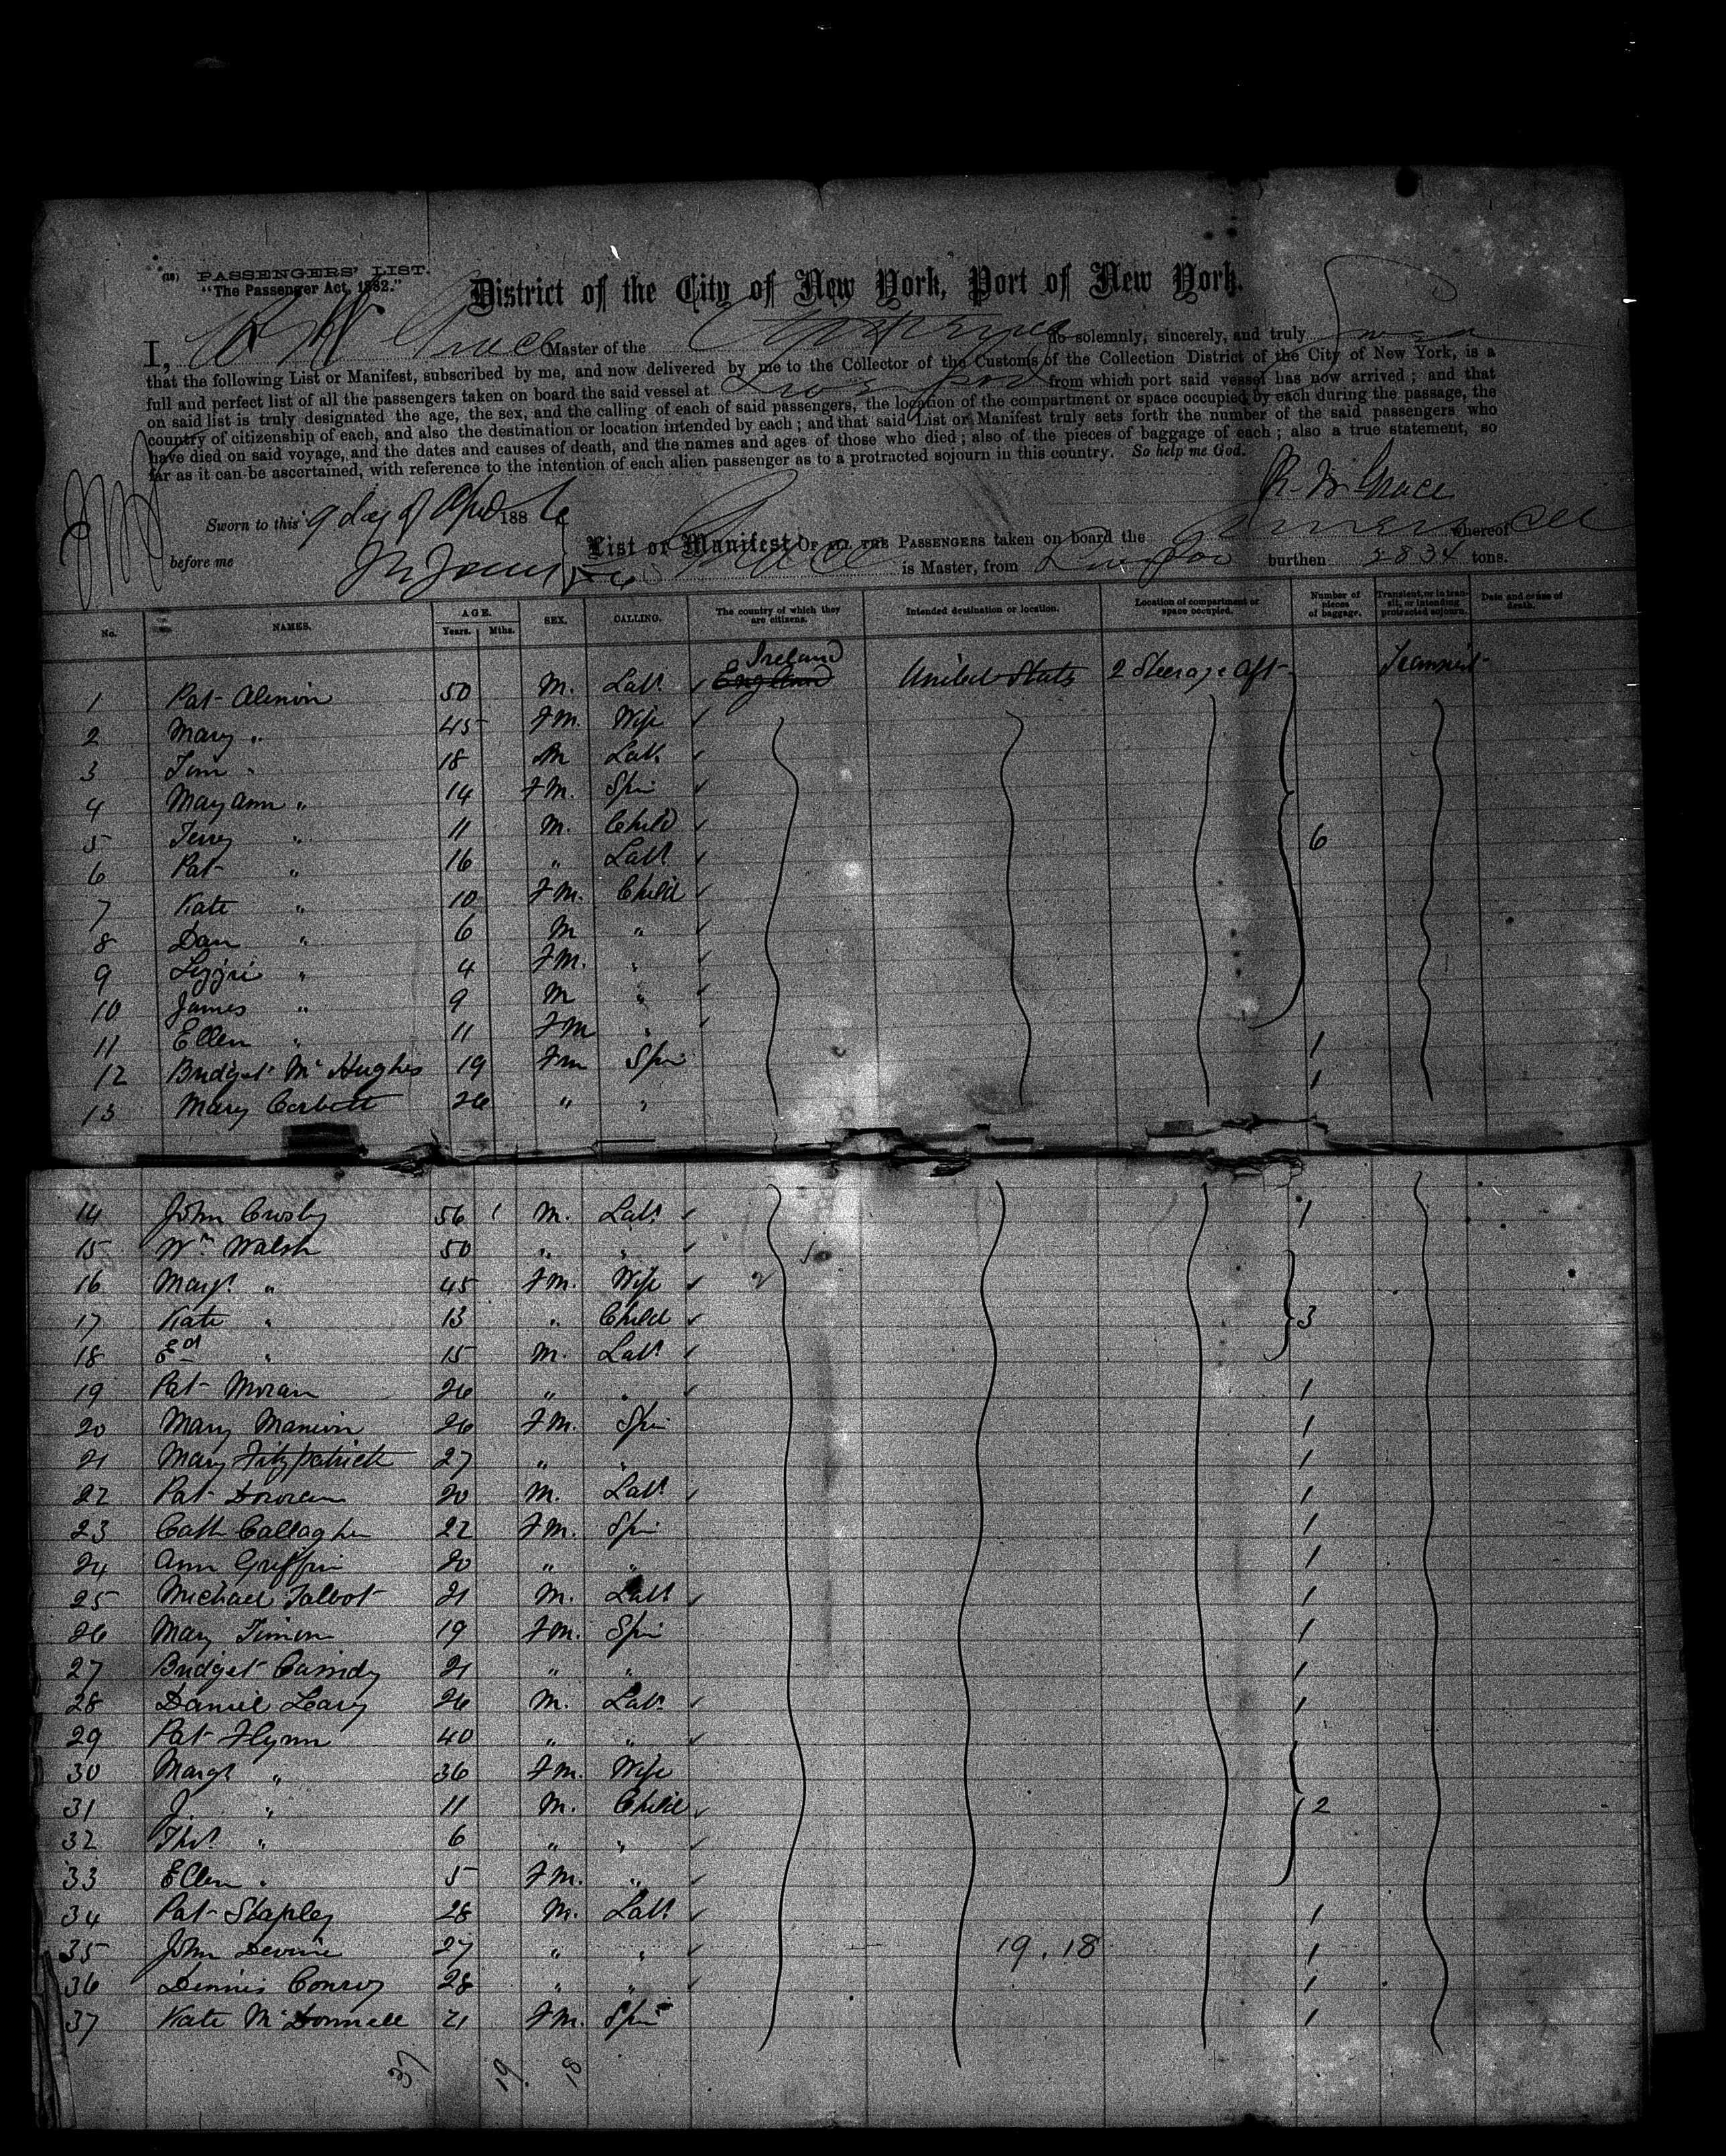 (18) PASSENGERS' LIST.
"The Passenger Act, 1882."
District of the City of New York, Port of New York.
I, R W Grace Master of the do solemnly, sincerely, and truly swear
that the following List or Manifest, subscribed by me, and now delivered by me to the Collector of the Customs of the Collection District of the City of New York, is a
full and perfect list of all the passengers taken on board the said vessel at Liverpool from which port said vessel has now arrived; and that
on said list is truly designated the age, the sex, and the calling of each of said passengers, the location of the compartment or space occupied by each during the passage, the
country of citizenship of each, and also the destination or location intended by each; and that said List or Manifest truly sets forth the number of the said passengers who
have died on said voyage, and the dates and causes of death, and the names and ages of those who died; also of the pieces of baggage of each; also a true statement, so
far as it can be ascertained, with reference to the intention of each alien passenger as to a protracted sojourn in this country. So help me God.
R. W. Grace
Sworn to this 9 day of April 1886
before me
List or Manifest OF ALL THE PASSENGERS taken on board the America whereof
Grace is Master, from Liverpool burthen 2834 tons.
No. NAMES. AGE. Years. Mths. SEX. CALLING. The country of which they are citizens. Intended destination or location. Location of compartment or space occupied. Number of pieces of baggage. Transient, or in transit, or intending protracted sojourn. Date and cause of death.
Ireland
1 Pat 50 M. Labr England United States 2 Steerage Aft Transient
2 Mary " 45 FM. Wife
3 Tom " 18 M Labr
4 Mary Ann " 14 FM. Spin
5 Terry " 11 M. Child
6 Pat " 16 " Labr 6
7 Kate " 10 FM. Child
8 Dan " 6 M "
9 Lizzie " 4 FM. "
10 James " 9 M "
11 Ellen " 11 FM "
12 Bridget McHughes 19 Fm Spin 1
13 Mary Corbett 26 " " 1
14 John Crosby 56 M. Labr 1
15 Wm Walsh 50 " "
16 Margt " 45 FM. Wife
17 Kate " 13 " Child 3
18 Ed " 15 M. Labr
19 Pat Moran 26 " " 1
20 Mary Mannion 26 FM. Spin 1
21 Mary Fitzpatrick 27 " " 1
22 Pat 20 M. Labr 1
23 Cath Callaghan 22 FM. Spin 1
24 Ann Griffin 20 " " 1
25 Michael Talbot 21 M. Labr 1
26 Mary Timon 19 FM. Spin 1
27 Bridget Cassidy 21 " " 1
28 Daniel Leary 26 M. Labr 1
29 Pat Flynn 40 " "
30 Margt " 36 FM. Wife
31 J. " 11 M. Child 2
32 Thos " 6 " "
33 Ellen " 5 FM. "
34 Pat Stapley 28 M. Labr 1
35 John Devine 27 " " 19.18 1
36 Dennis Conroy 28 " " 1
37 Kate McDonnell 21 FM. Spin 1
37 19. 18